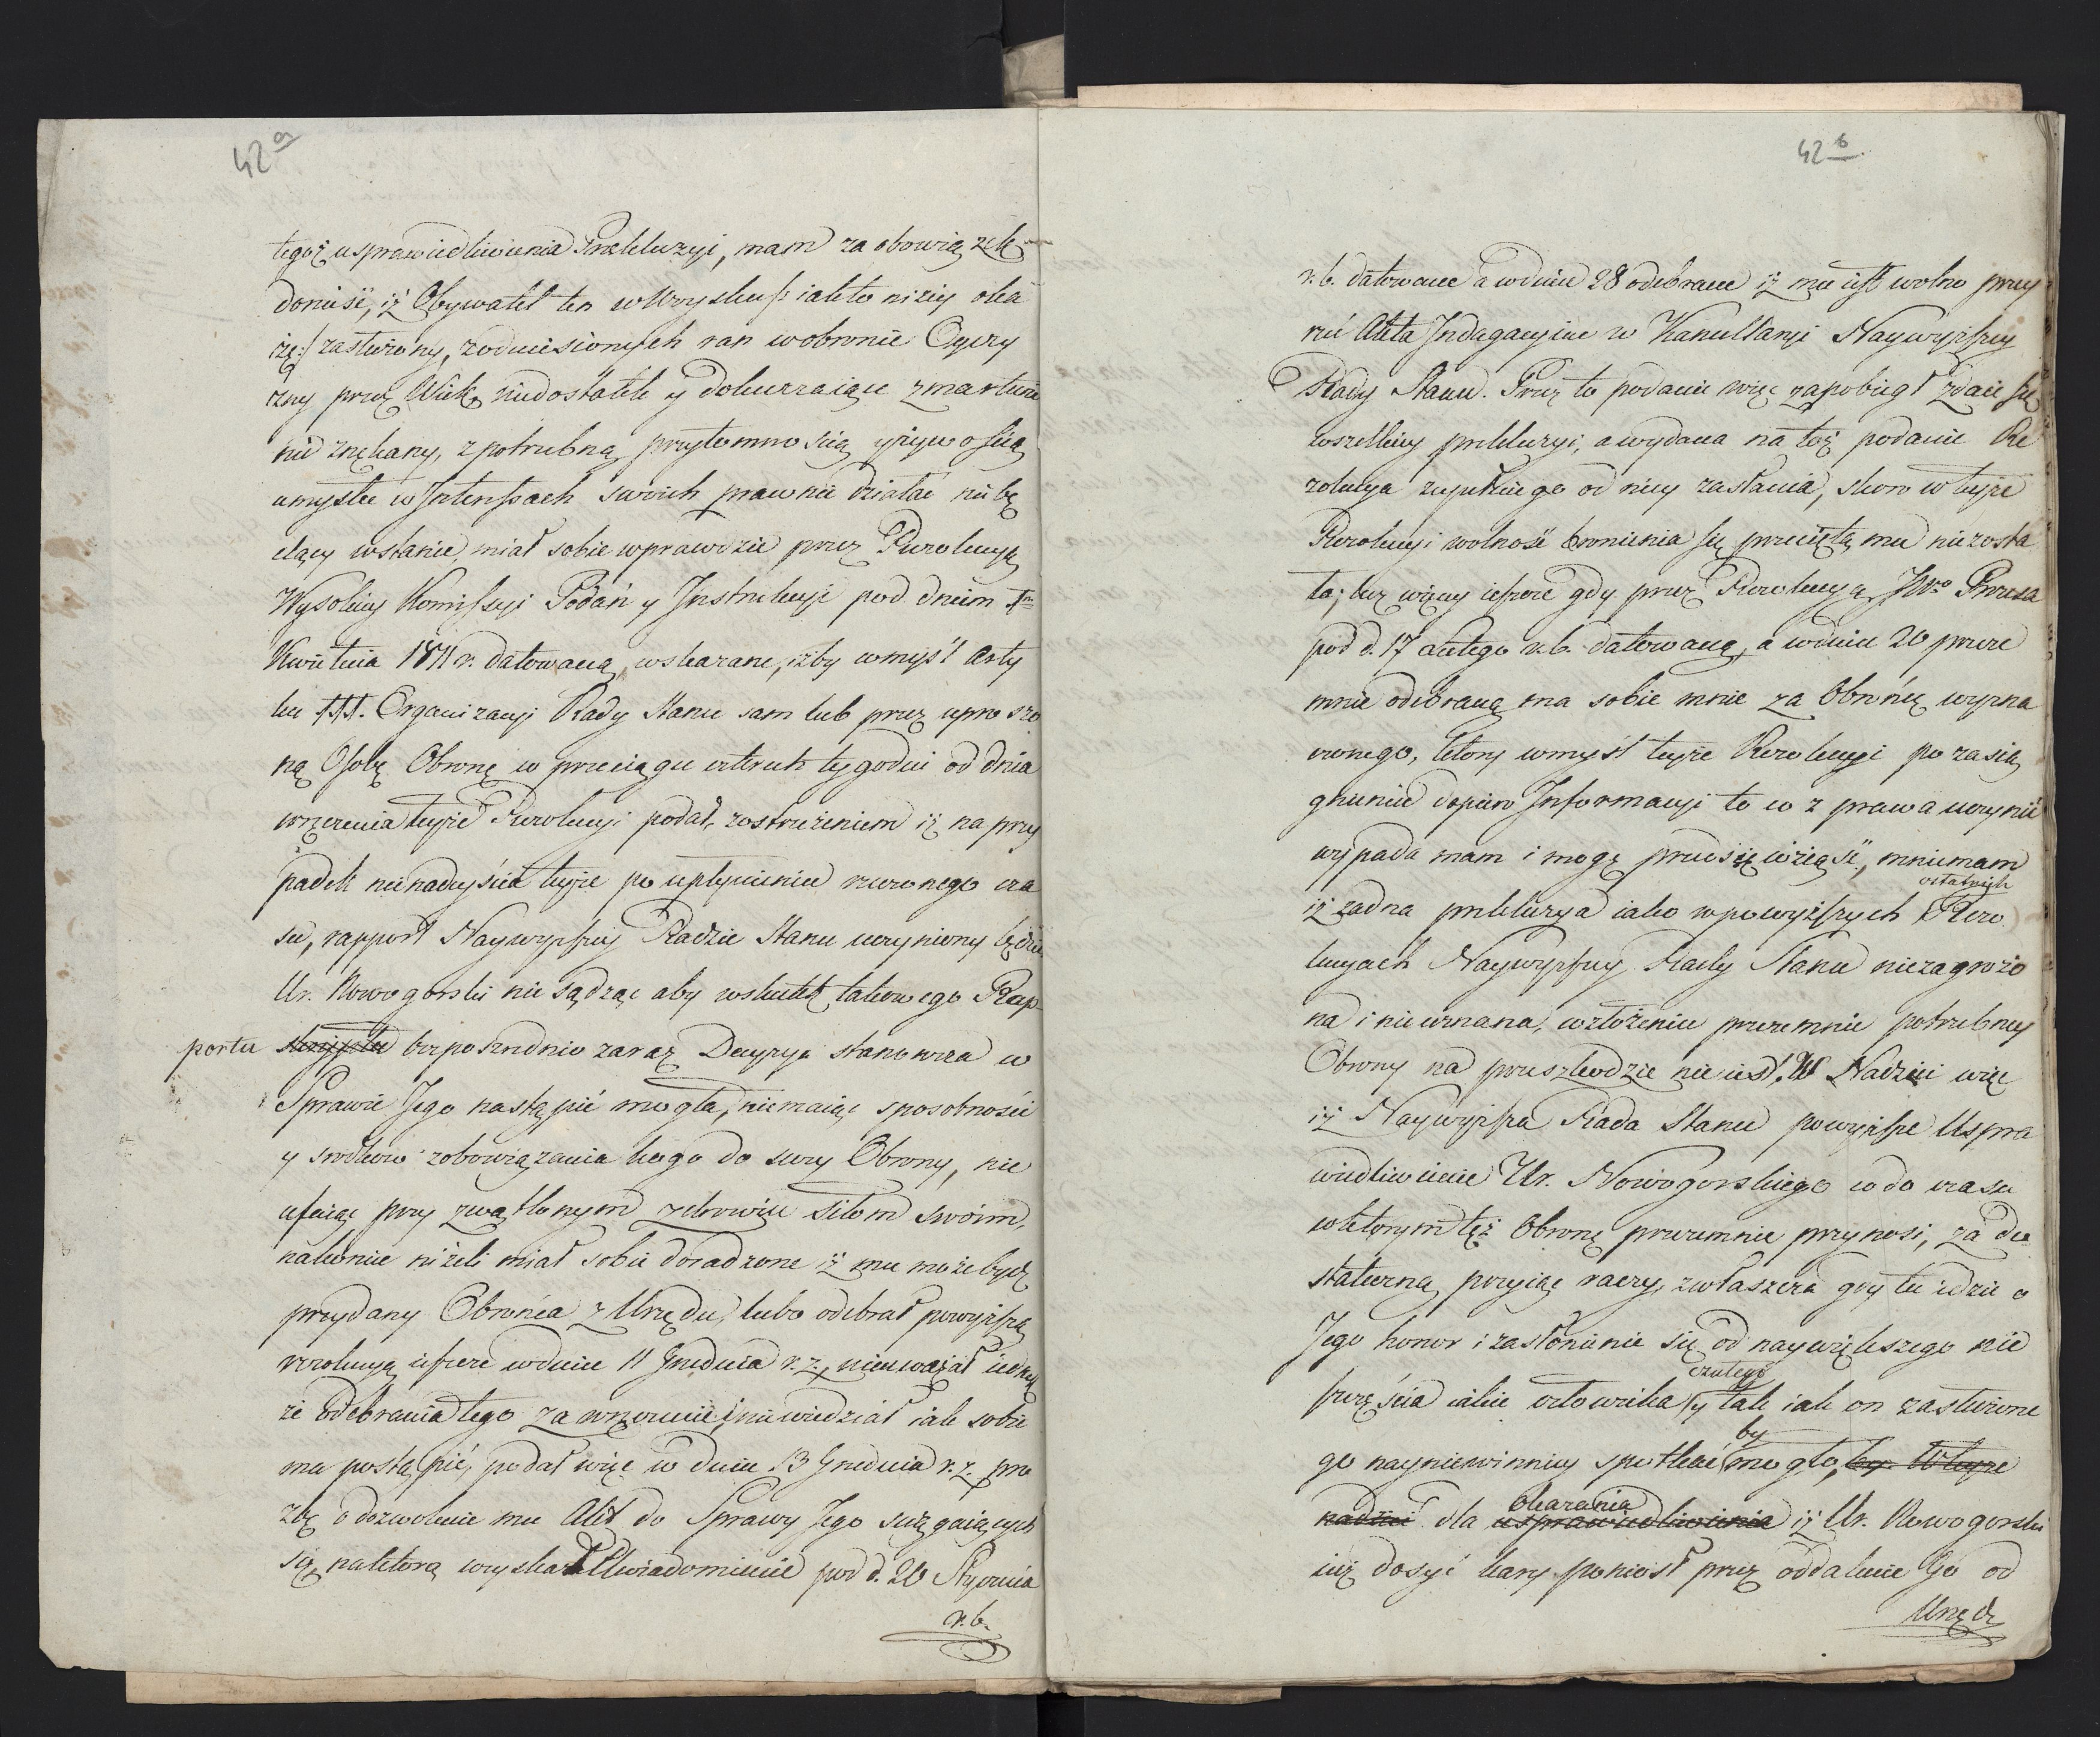 42a
tegoż usprawiedliwienia Prekluzyi, mam za obowiązek
donieść, iż Obywatel ten w Woysku /: iak to niżey oka
żę :/ zasłużony, z odniesionych ran w obronie Oyczy
zny przez Wiek, niedostatek y dokuczaiące zmartwie
nie znękany, z potrzebną przytomnością y żywością
umysłu w Interessach swoich prawnie działać nie bę
dący w stanie, miał sobie wprawdzie przez Rezolucyę
Wysokiey Kommissyi Podań y Instrukcyi pod dniem
Kwietnia 1811 r. datowaną, wskazane, iżby w myśl Arty
kułu Organizacyi Rady Stanu sam lub przez uproszo
ną Osobę Obronę w przeciągu czterech tygodni od dnia
wręczenia teyże Rezolucyi podał, z ostrzeżeniem iż na przy
padek nienadeyścia teyże po upłynieniu rzeczonego cza
su, rapport Naywyższey Radzie Stanu uczyniony będzie
Ur. Nowogorski nie sądząc aby w skutek takowego Rap-
portu skryptu bezpośrednio zaraz Decyzya stanowcza w
Sprawie Jego nastąpić mogła, nie maiąc sposobności
y srodków zobowiązania kogo do swey Obrony, nie
ufaiąc przy zwątlonym zdrowiu siłom swoim,
nakoniec nieżeli miał sobie doradzone iż mu może bydź
przydany Obrońca z Urzędu, lubo odebrał powyższą
rezolucyą ieszcze w dniu 11 Grudnia r. z., nieuważał iednak
że odebrania tego za wręczenie, nie wiedział iak sobie
ma postąpić, podał więc w dniu 13 Grudnia r. z. pro
zbę o dozwolenie mu Akt do Sprawy Jego sciągaiących
się, na którą wyskał Uwiadomienie pod d. 20 Stycznia
r. b.
42 b
r. b. datowane a w dniu 28 odebrane iż mu iest wolno przey
rzeć Akta Indagacyine w Kancellaryi Naywyższey
Rady Stanu. Przez to podanie więc zapobiegł zdaie się
wszelkiey prekluzyi, a wydana na toż podanie Re
zolucya zupełnie go od niey zasłania, skoro w teyże
Rezolucyi wolność bronienia się przeciętą mu nie zosta
ła; tem więcey ieszcze gdy przez Rezolucyą JW° Prezesa
pod d. 17 Lutego r. b. datowaną, a w dniu 20 przeze
mnie odebraną ma sobie mnie za Obrońcę wyzna
czonego, który w myśl teyże Rezolucyi po zasią
gnieniu dopiero Informacyi to co z prawa uczynić
wypada mam i mogę przedsięwziąść, mniemam
iż żadna prekluzya iako w powyższych ostatnich Rezo
lucyach Naywyższey Rady Stanu niezagrożo
na i nieuznana, w złożeniu przezemnie potrzebney
Obrony na przeszkodzie nie iest. W Nadziei więc
iż Naywyższa Rada Stanu powyższe Uspra
wiedliwienie Ur. Nowogorskiego co do czasu
w którym tęż Obronę przezemnie przynosi, za do
stateczną przyiąć raczy, zwłaszcza gdy tu idzie o
Jego honor i zasłonienie się od naywiększego nie
szczęścia iakie człowieka czułego y tak iak on zasłużone
go nayniewinniey spotkać by mogło, w teyże
nadziei dla okazania usprawiedliwienia iż Ur. Nowogorski
iuż dosyć kary poniosł przez oddalenie Go od
Urzędu